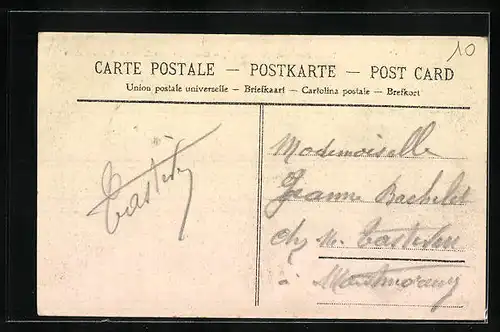 10
CARTE POSTALE — POSTKARTE — POST CARD
Union postale universelle — Briefkaart — Cartolina postale — Brefkort
Mademoiselle
Jeanne Bachelet
chez Mr.
à